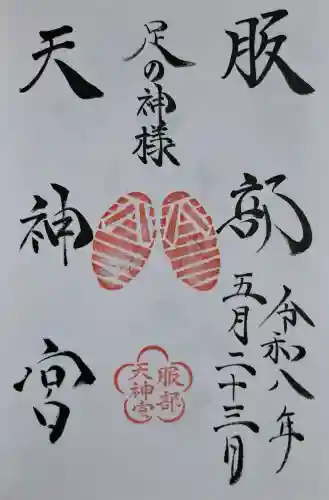 服部
令和八年
五月二十三月
足の神様
天神宮
服部
天神宮